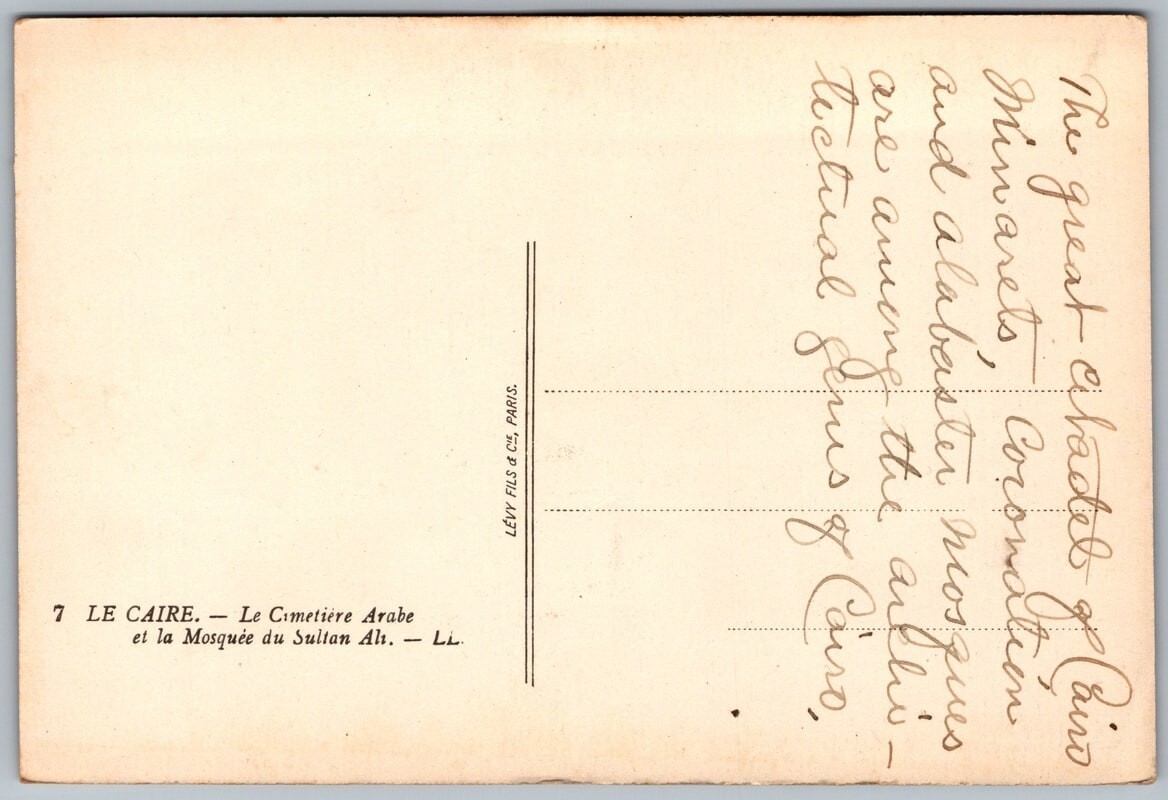 The great citadel of Cairo
Minarets, Coronation
and alabaster mosques
are among the archi-
tectual gems of Cairo.
LÉVY FILS & Cie, PARIS.
7 LE CAIRE. — Le Cimetière Arabe
et la Mosquée du Sultan Ali. — LL.